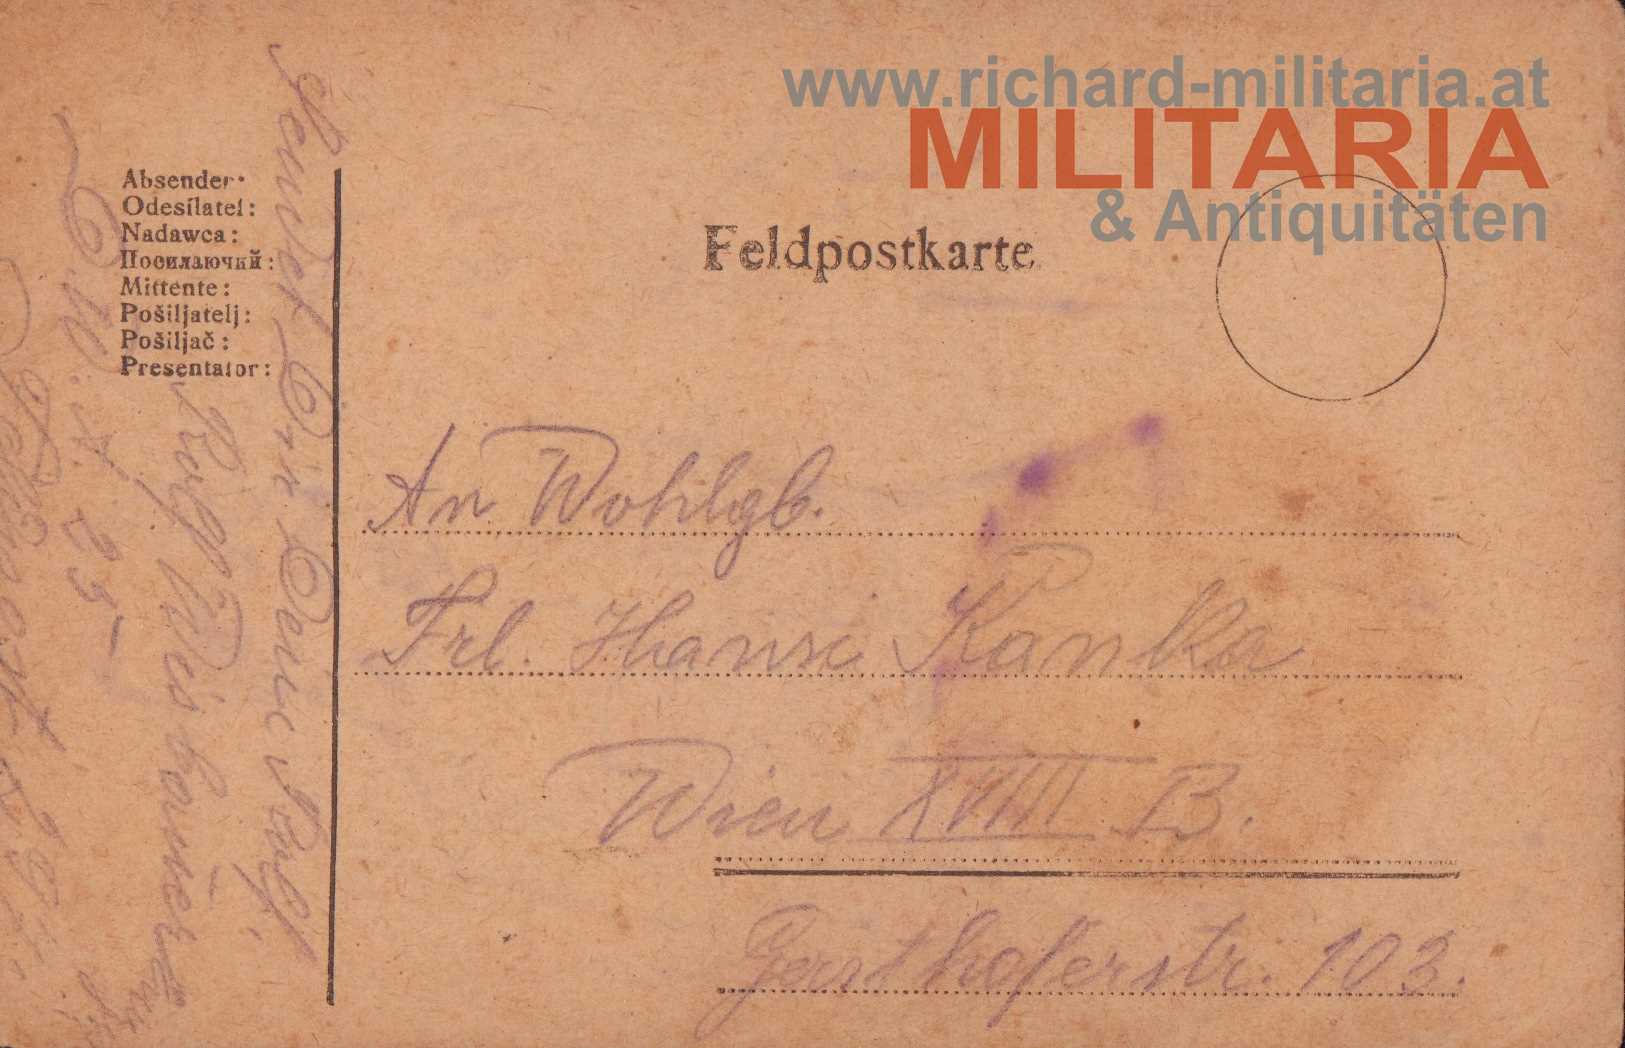 www.richard-militaria.at
MILITARIA
& Antiquitäten
Absender:
Odesílatel:
Nadawca:
Посилаючий:
Mittente:
Pošiljatelj:
Pošiljač:
Presentator:
Feldpostkarte
An Wohlgb.
Frl. Hansi Kanka
Wien XVIII B.
Gersthoferstr. 103.
sendet Dir Dein Rolf!
Rolf
25
Feldpost